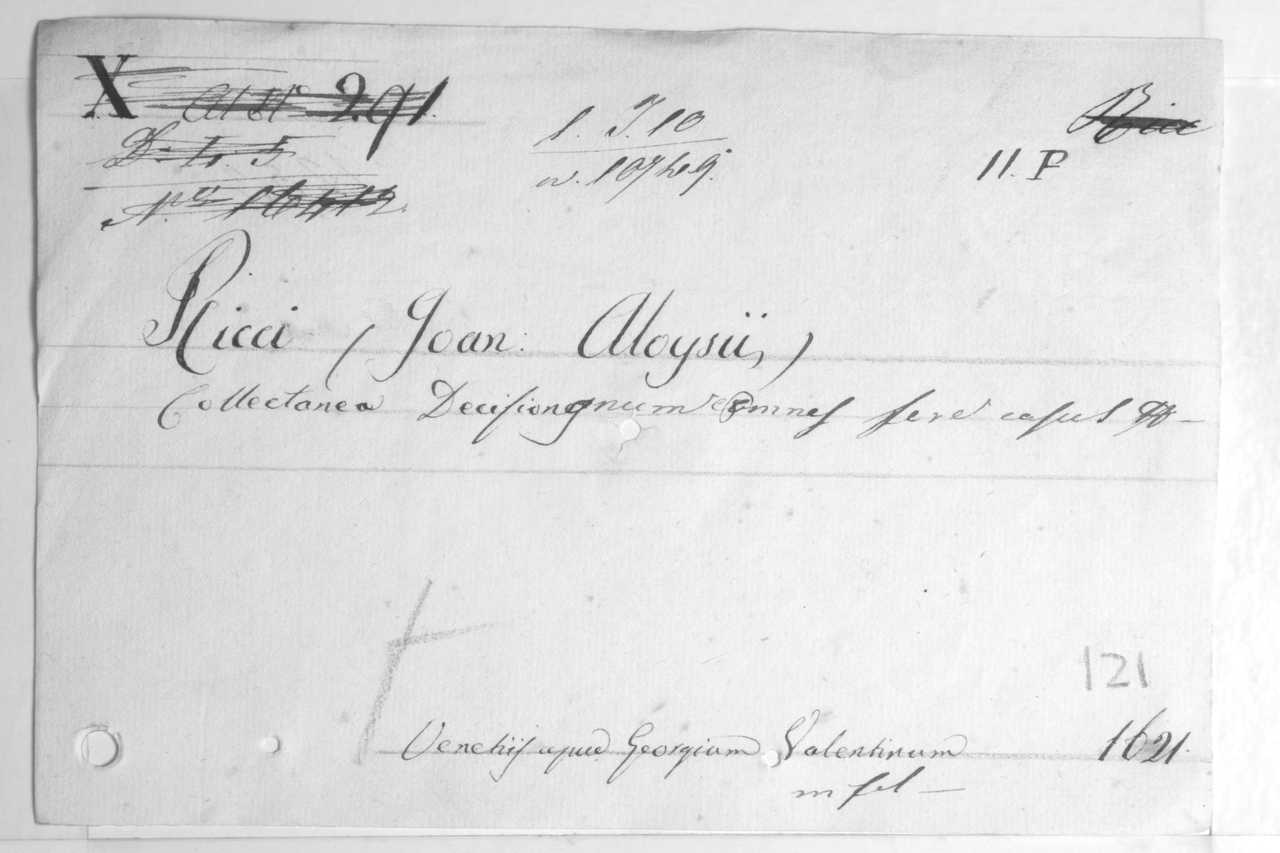 X 291.
D. L. 5
Nro 16412.
l. J. 10
n. 10749.
11. P
Ricci (Joan: Aloysii,)
Collectanea Decisionum omnes fere casus
121
Venetiis apud Georgium Valentinum 1621.
in fol —